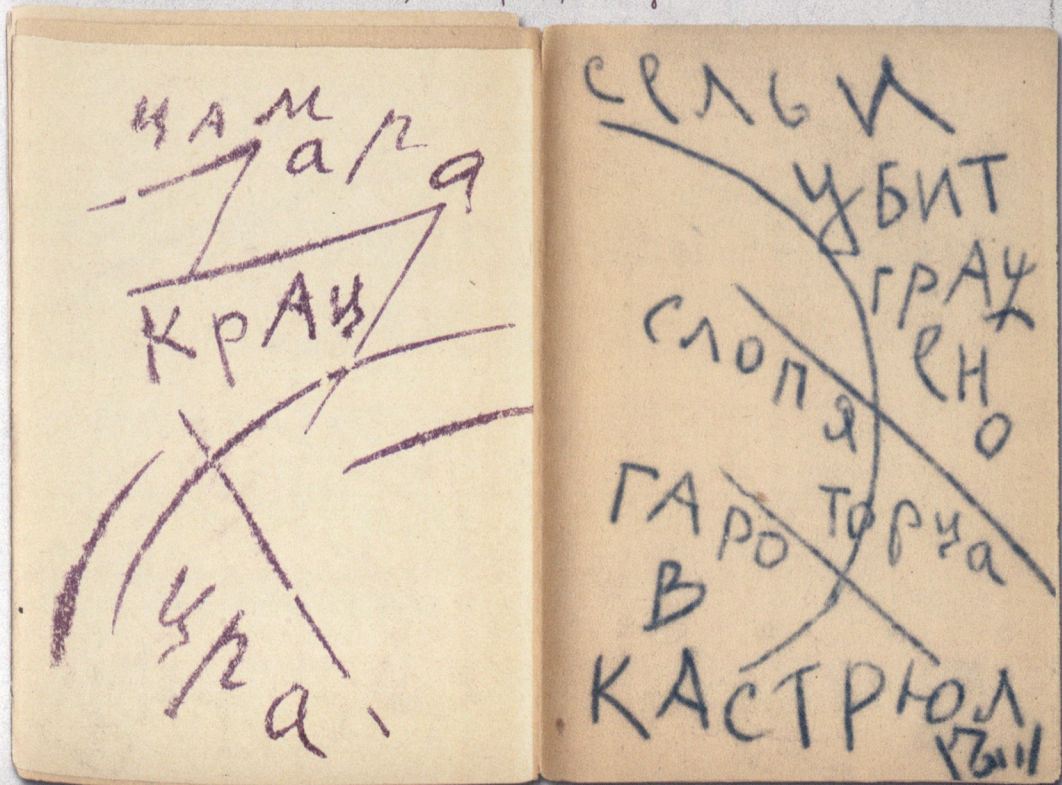 ЦАМ
ара
КРАЦ
Цра
сеЛЬ И
УБИТ
ГРАЦ
еНО
слопя
ГАРО торча
В
КАСТРЮЛ